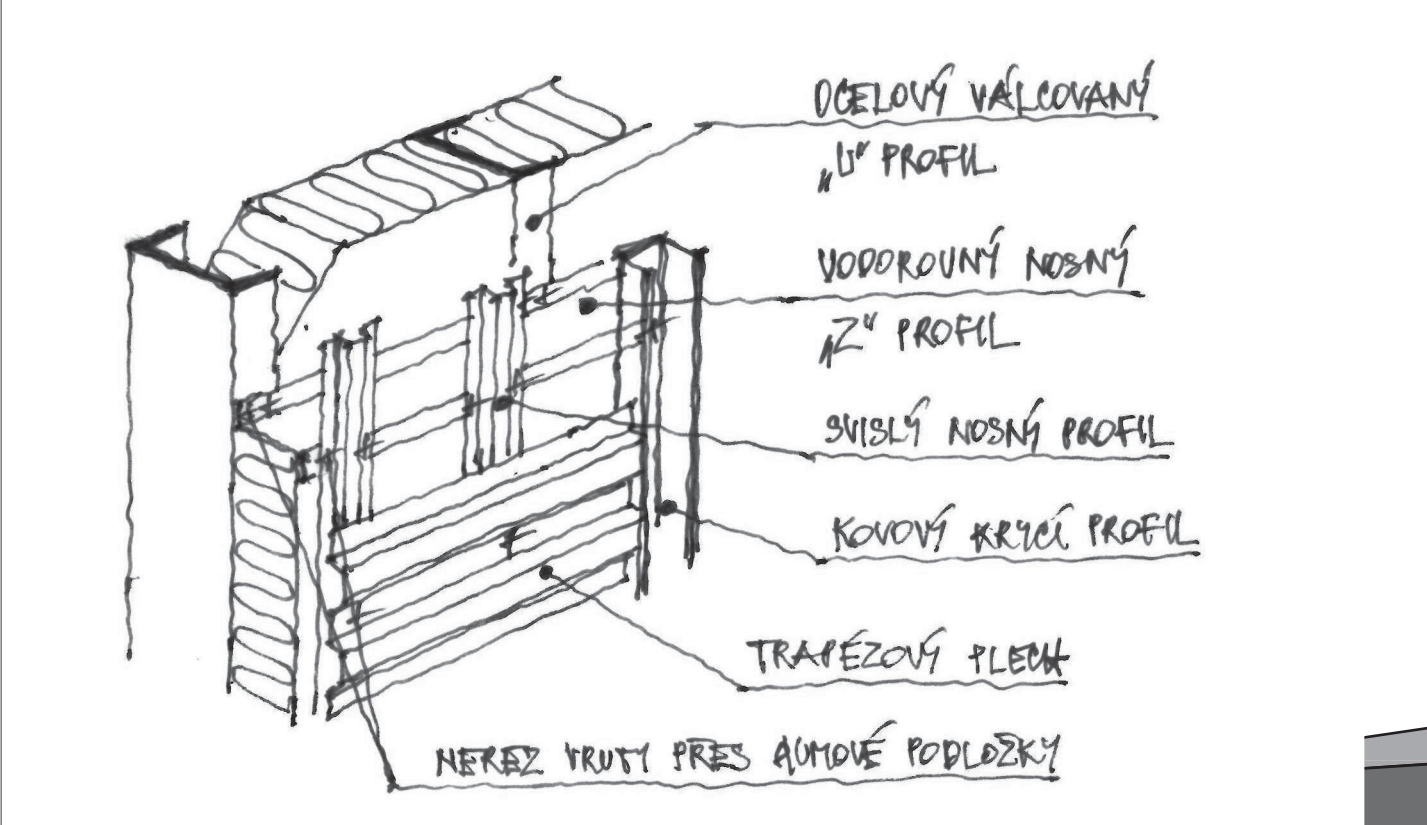 OCELOVÝ VÁLCOVANÝ
„U" PROFIL
VODOROVNÝ NOSNÝ
„Z" PROFIL
SVISLÝ NOSNÝ PROFIL
KOVOVÝ KRYCÍ PROFIL
TRAPÉZOVÝ PLECH
NEREZ VRUTY PŘES GUMOVÉ PODLOŽKY